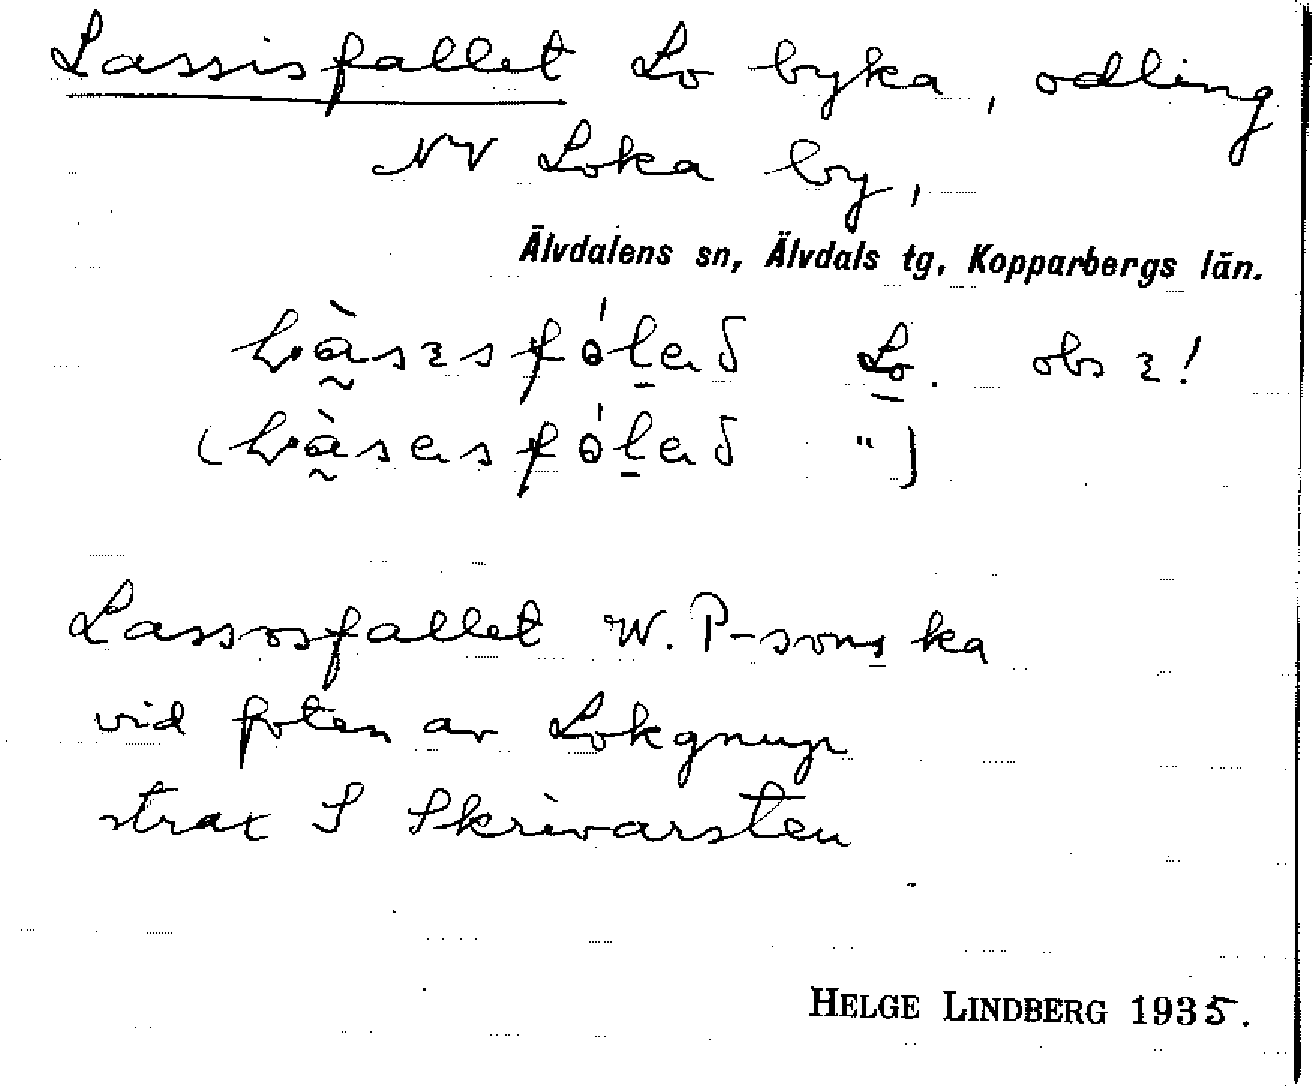 Lassisfallet Lo byka, odling
NV Loka by,
Älvdalens sn, Älvdals tg, Kopparbergs län.
Lo. obs ɜ!
( " )
Lassosfallet W. P-sons ka
vid foten av Lokgnupr
strax S Skrivarsten
HELGE LINDBERG 1935.